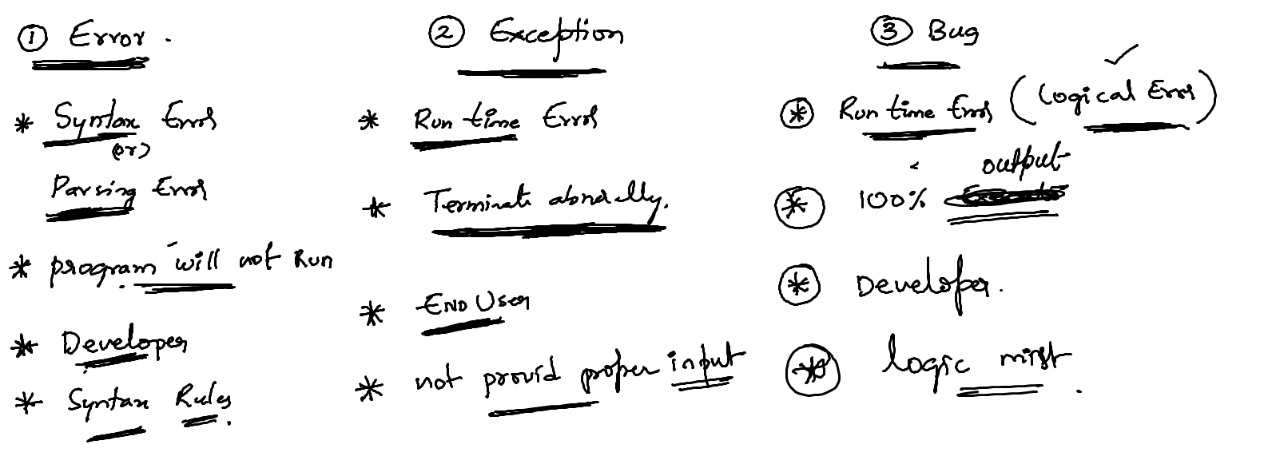 ① Error.
* Syntax Error
(or)
Parsing Error
* program will not Run
* Developer
* Syntax Rules.
② Exception
* Run time Error
* Terminate abnormally.
* END User
* not provid proper input
③ Bug
* Run time Error (Logical Error)
* 100% output
* Developer.
* logic mist.